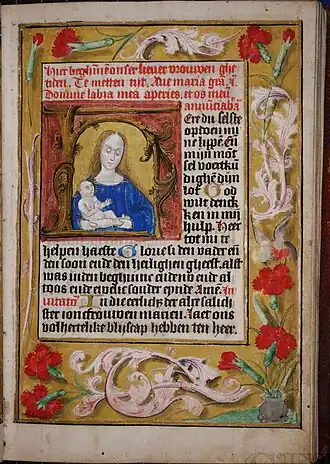 Hier beghint onser liever vrouwen ghe
tiden. Te metten tijt. Aue maria gra. 
Domine labia mea aperies. et os meū
annūciabit
Ere du selste
op doen mi
ne lippē En
mijn mōt
sel voertkū
dighē dijn
lof God
wilt denc
ken in mij
hulp. Heer
tot mi te
helpen haeste Glorie si den vader en
den soon ende den heilighen gheest. alst
was inden beghinne ende nv ende al
toos ende ewelic sonder eynde Amē. In
uitatoriū In die eerlicheit der alre salich
ster ioncfrouwen marien. Laet ons
volhertelike blijscap hebben ten heer.